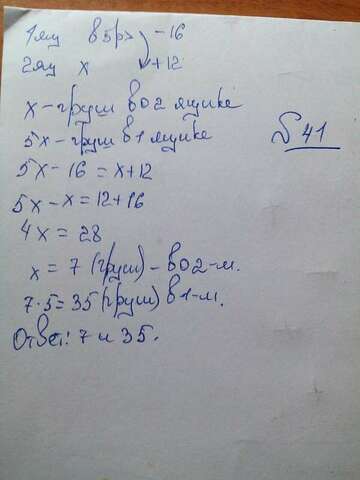 1ящ в 5р> -16
2ящ x +12
x - груш во 2 ящике
5x - груш в 1 ящике
№ 41
5x - 16 = x + 12
5x - x = 12 + 16
4x = 28
x = 7 (груш) - во 2-м.
7·5 = 35 (груш) в 1-м.
Ответ: 7 и 35.